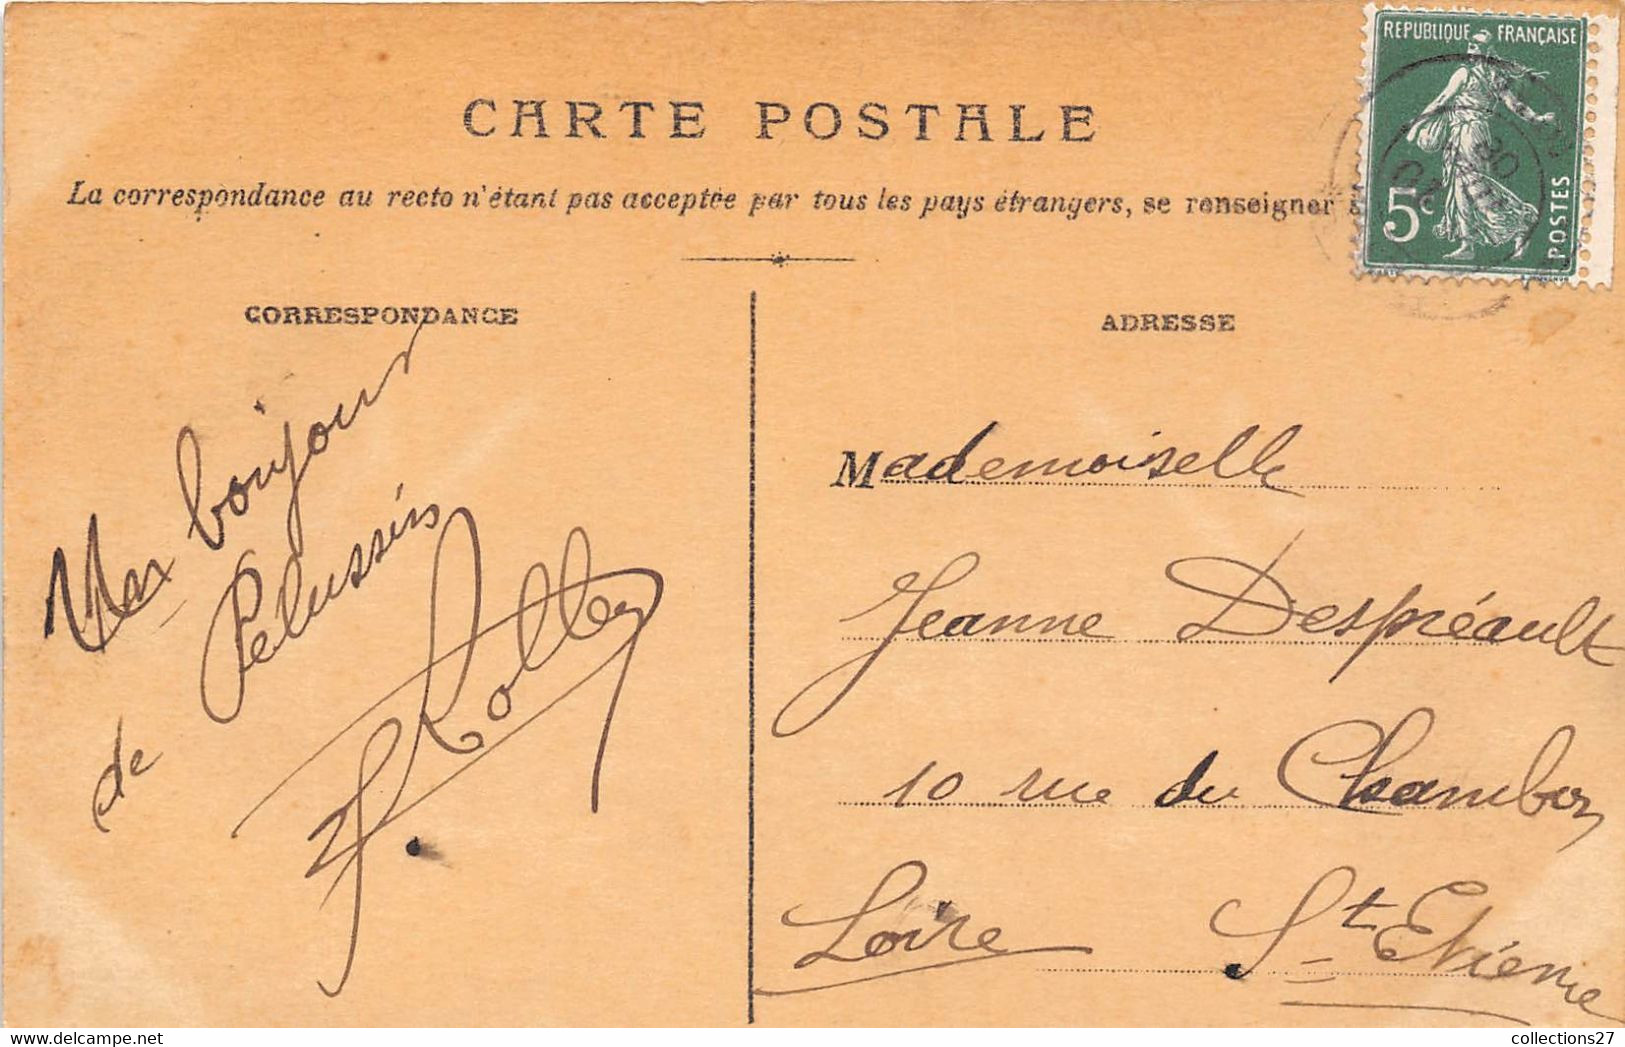 CARTE POSTALE
La correspondance au recto n'étant pas acceptée par tous les pays étrangers, se renseigner
REPUBLIQUE FRANÇAISE
5c
POSTES
CORRESPONDANCE
bonjour
de Pélussin
ADRESSE
Mademoiselle
Jeanne Despréault
10 rue du Chambon
Loire St Etienne
collections27